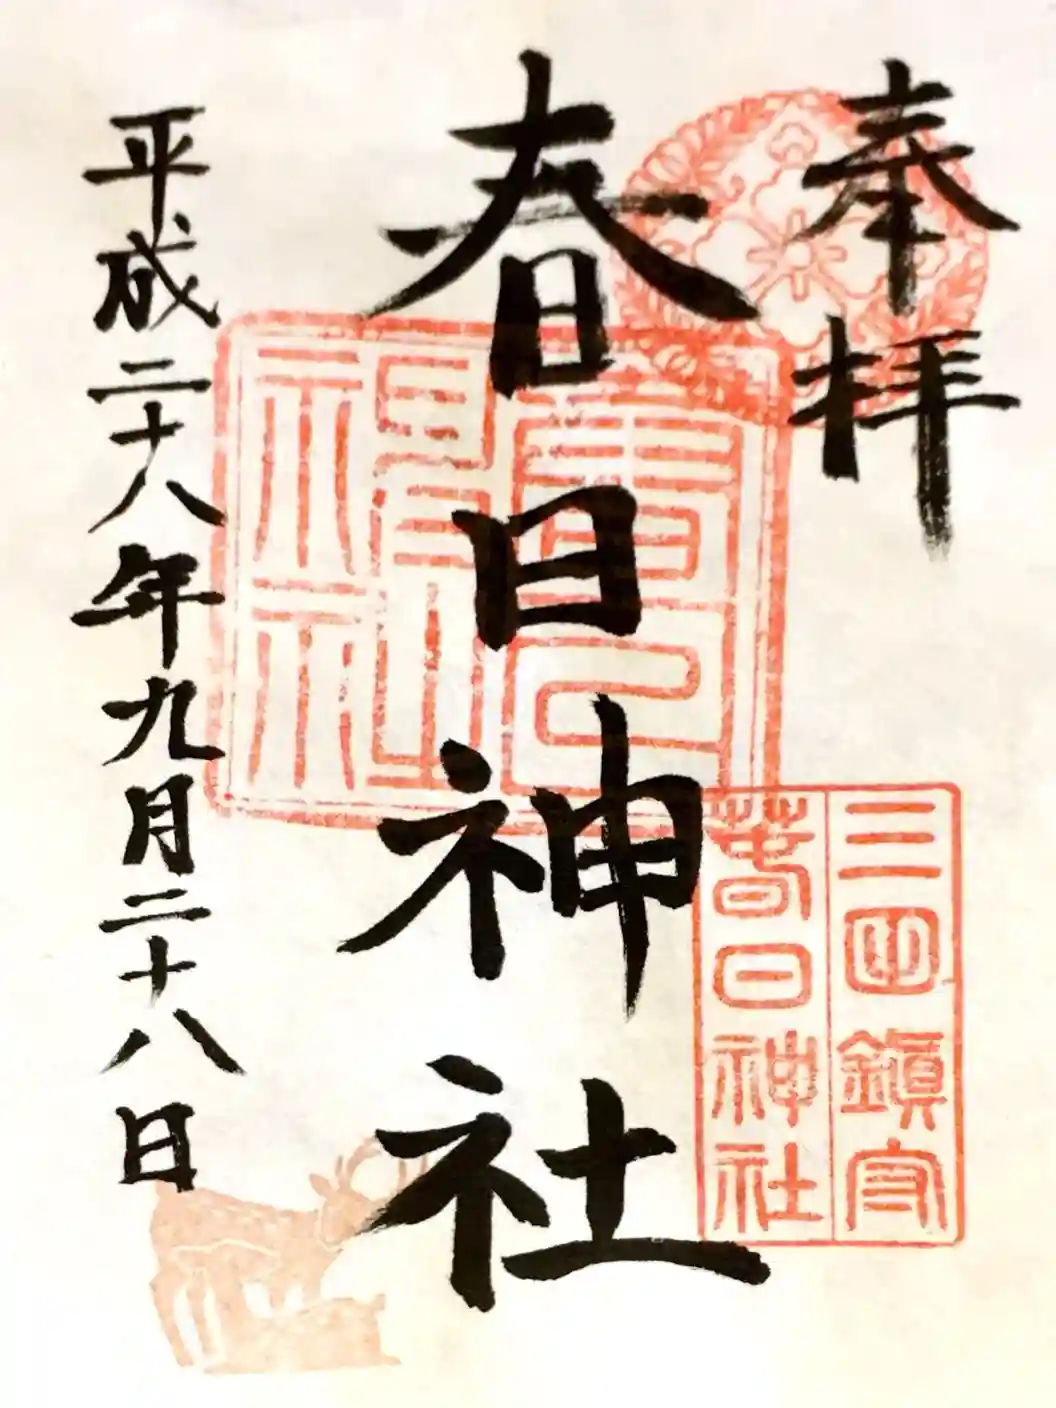 奉拝
春日神社
平成二十八年九月二十八日
三田鎮守
春日神社
春日神社